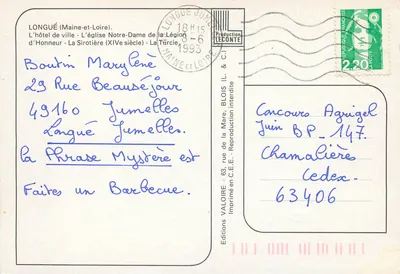 LONGUÉ (Maine-et-Loire).
L'hôtel de ville - L'église Notre-Dame de la Légion
d'Honneur - La Sirotière (XIVe siècle) - La Turcie.
Boutin Marylène
29 Rue Beauséjour
49160 Jumelles
Longué Jumelles.
la Phrase Mystère est
Faites un Barbecue.
LONGUE JUMELLES
18H15
8-6
1993
MAINE ET LOIRE
L
Production
LECONTE
Editions VALOIRE - 63, rue de la Mare, BLOIS (L. & C.)
Imprimé en C.E.E. - Reproduction interdite
2,20
Concours Agrigel
Juin BP - 147.
Chamalières
Cedex.
63406